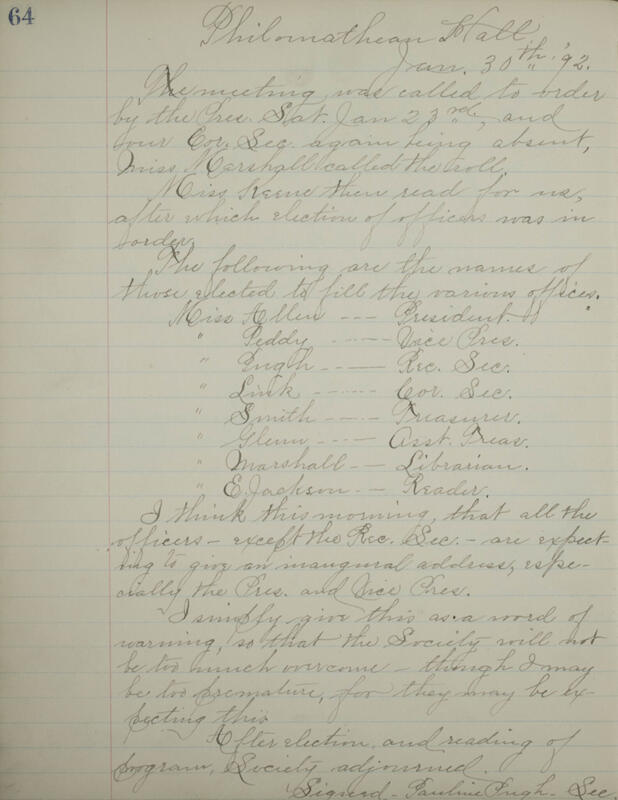 64
Philomathean Hall
Jan. 30th, '92.
The meeting was called to order
by the Pres. Sat. Jan 23rd, and
our Cor. Sec. again being absent,
Miss Marshall called the roll.
Miss Keene then read for us,
after which election of officers was in
order.
The following are the names of
those elected to fill the various offices.
Miss Allen --- President.
" Peddy ---- Vice Pres.
" Pugh ---- Rec. Sec.
" Link ----- Cor. Sec.
" Smith ---- Treasurer.
" Glenn ---- Asst. Treas.
" Marshall -- Librarian.
" E. Jackson -- Reader.
I think this morning, that all the
officers - except the Rec. Sec. - are expect-
ing to give an inaugural address, espe-
cially the Pres. and Vice Pres.
I simply give this as a word of
warning, so that the Society will not
be too much overcome - though I may
be too premature, for they may be ex-
pecting this.
After election, and reading of
program, Society adjourned.
Signed - Pauline Pugh - Sec.